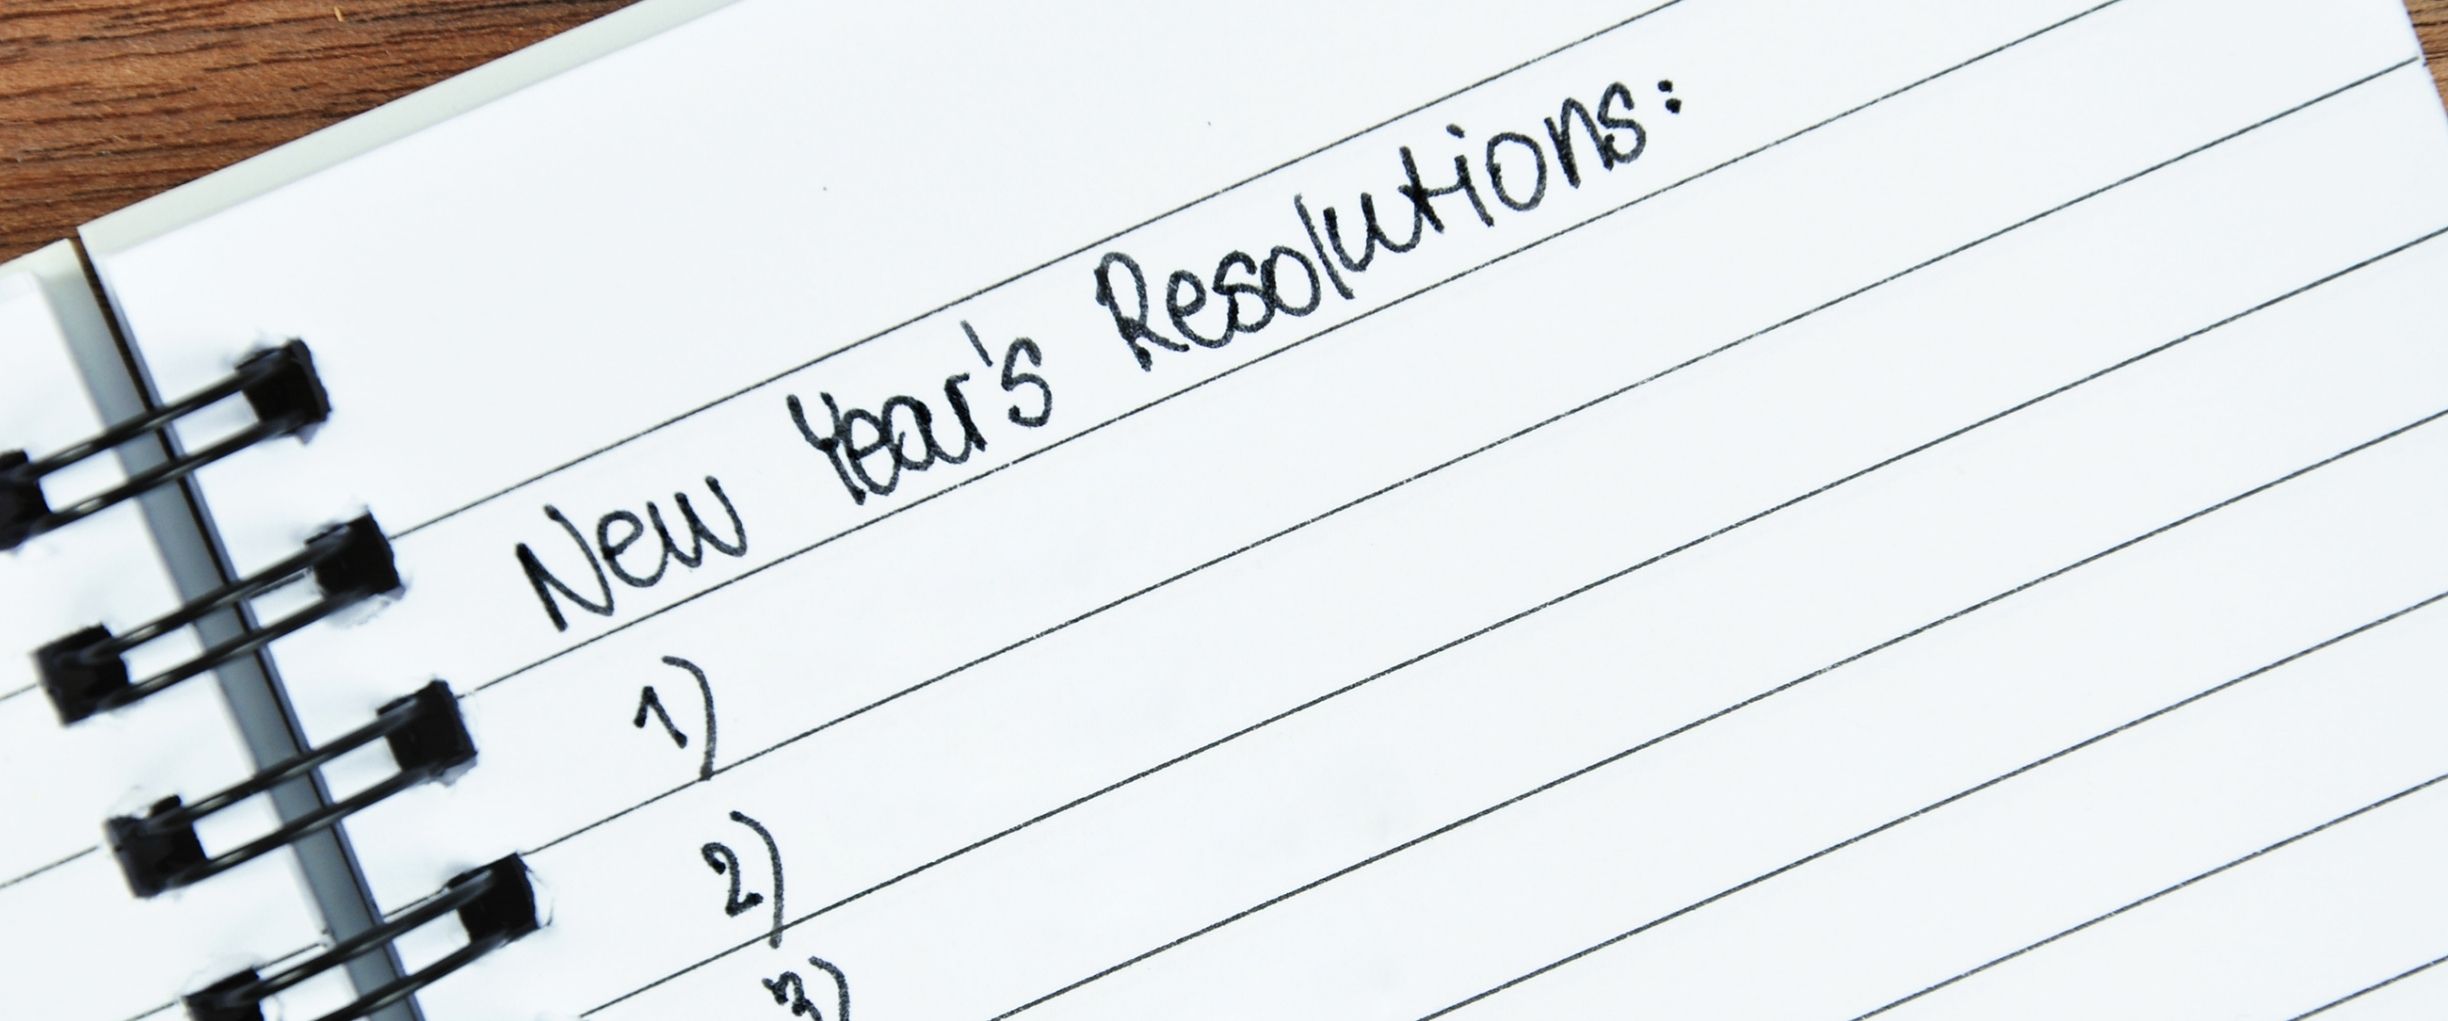 New Year's Resolutions:
1)
2)
3)